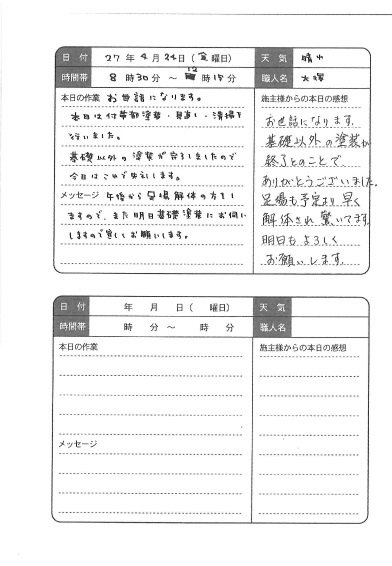 日 付 27 年 4 月 24 日 ( 金 曜日) 天 気 晴れ
時間帯 8 時 30 分 ～ 12 時 15 分 職人名 大塚
本日の作業 お世話になります。
本日は付帯部塗装・見直し・清掃を
行いました。
基礎以外の塗装が完了しましたので
今日はこれで失礼します。
メッセージ 午後から足場解体の方をし
ますので、また明日基礎塗装にお伺い
しますので宜しくお願いします。
施主様からの本日の感想
お世話になります。
基礎以外の塗装が
終了とのことで
ありがとうございました。
足場も予定より早く
解体され驚いてます。
明日もよろしく
お願いします。
日 付 年 月 日 ( 曜日) 天 気
時間帯 時 分 ～ 時 分 職人名
本日の作業
メッセージ
施主様からの本日の感想